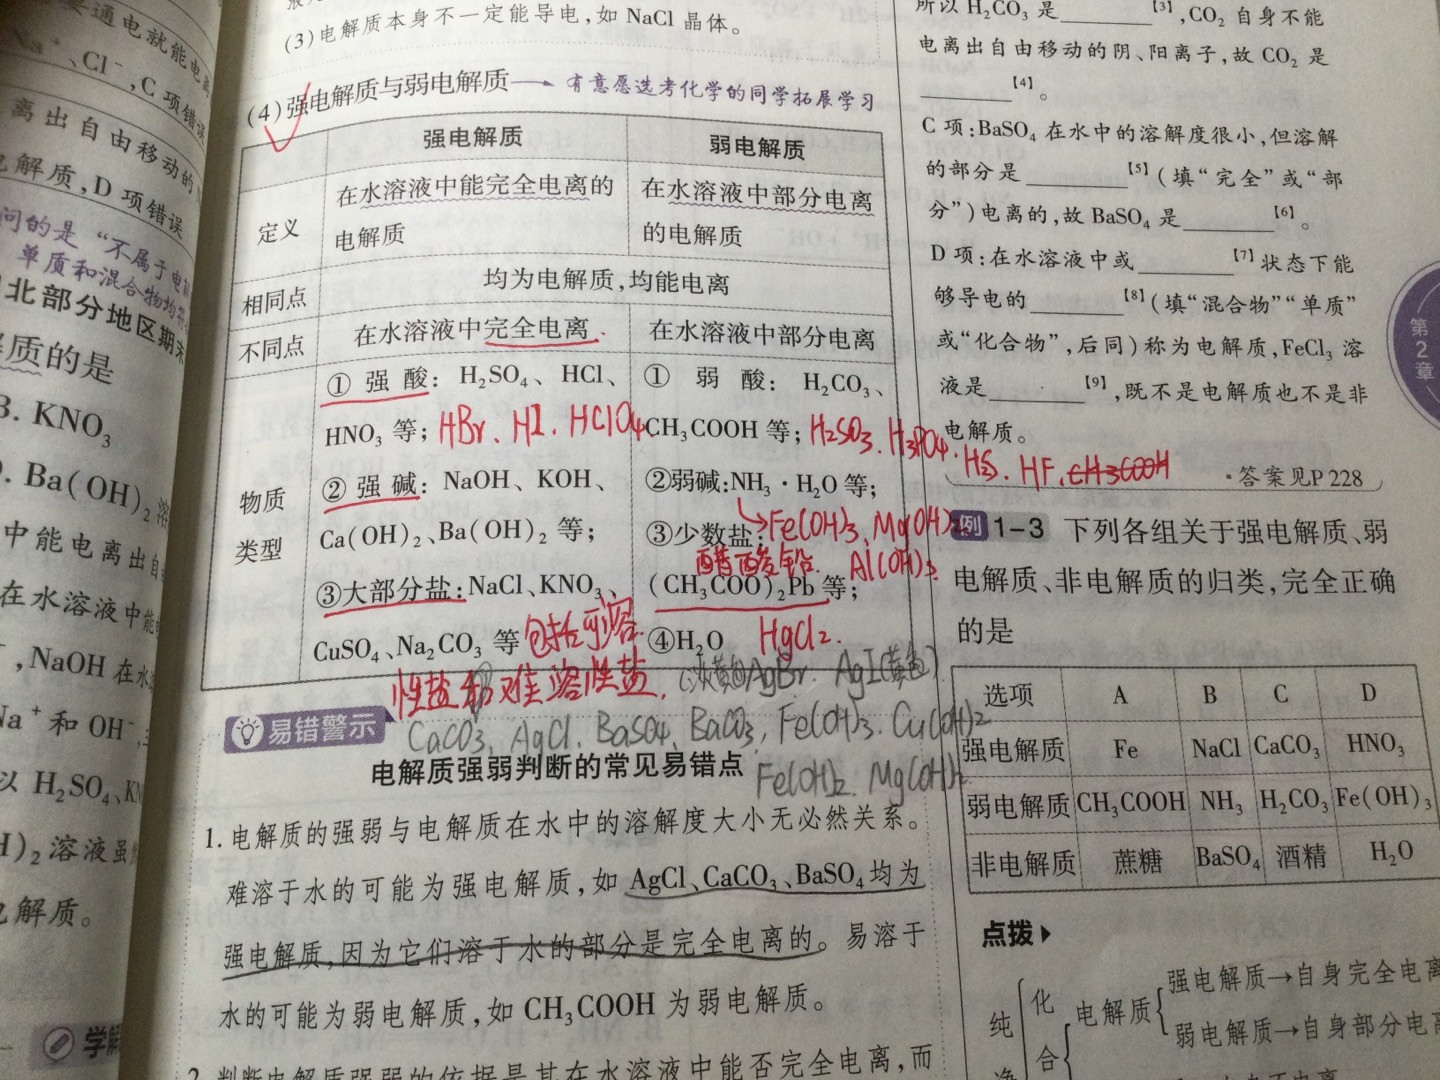 要通电就能电离
Na⁺、Cl⁻,C 项错误
离出自由移动的
电解质,D 项错误
问的是“不属于电解
单质和混合物均
北部分地区期末
解质的是
B. KNO₃
D. Ba(OH)₂ 溶
中能电离出自
在水溶液中能
,NaOH 在水
Na⁺和 OH⁻
以 H₂SO₄、KN
H)₂ 溶液虽
电解质。
学解
(3)电解质本身不一定能导电,如 NaCl 晶体。
(4)强电解质与弱电解质 → 有意愿选考化学的同学拓展学习
强电解质 弱电解质
定义 在水溶液中能完全电离的电解质 在水溶液中部分电离的电解质
相同点 均为电解质,均能电离
不同点 在水溶液中完全电离 在水溶液中部分电离
物质类型
①强酸:H₂SO₄、HCl、
HNO₃ 等; HBr、HI、HClO₄
②强碱:NaOH、KOH、
Ca(OH)₂、Ba(OH)₂ 等;
③大部分盐:NaCl、KNO₃、
CuSO₄、Na₂CO₃ 等 包括可溶
性盐和难溶性盐.
①弱酸:H₂CO₃、
CH₃COOH 等; H₂SO₃、H₃PO₄.
H₂S、HF、CH₃COOH
②弱碱:NH₃·H₂O 等;
Fe(OH)₃、Mg(OH)₂
Al(OH)₃
③少数盐:
醋酸铅
(CH₃COO)₂Pb 等;
④H₂O HgCl₂.
(淡黄色)AgBr. AgI(黄色)
CaCO₃、AgCl、BaSO₄、BaCO₃, Fe(OH)₃. Cu(OH)₂
Fe(OH)₂. Mg(OH)₂
易错警示
电解质强弱判断的常见易错点
1.电解质的强弱与电解质在水中的溶解度大小无必然关系。
难溶于水的可能为强电解质,如 AgCl、CaCO₃、BaSO₄ 均为
强电解质,因为它们溶于水的部分是完全电离的。易溶于
水的可能为弱电解质,如 CH₃COOH 为弱电解质。
2.判断电解质强弱的依据是其在水溶液中能否完全电离,而
所以 H₂CO₃ 是________[3],CO₂ 自身不能
电离出自由移动的阴、阳离子,故 CO₂ 是
________[4]。
C 项:BaSO₄ 在水中的溶解度很小,但溶解
的部分是________[5](填“完全”或“部
分”)电离的,故 BaSO₄ 是________[6]。
D 项:在水溶液中或________[7]状态下能
够导电的________[8](填“混合物”“单质”
或“化合物”,后同)称为电解质,FeCl₃ 溶
液是________[9],既不是电解质也不是非
电解质。
·答案见 P 228
第2章
例 1-3 下列各组关于强电解质、弱
电解质、非电解质的归类,完全正确
的是
选项 A B C D
强电解质 Fe NaCl CaCO₃ HNO₃
弱电解质 CH₃COOH NH₃ H₂CO₃ Fe(OH)₃
非电解质 蔗糖 BaSO₄ 酒精 H₂O
点拨
强电解质→自身完全电离
纯 化 电解质
弱电解质→自身部分电离
净 合